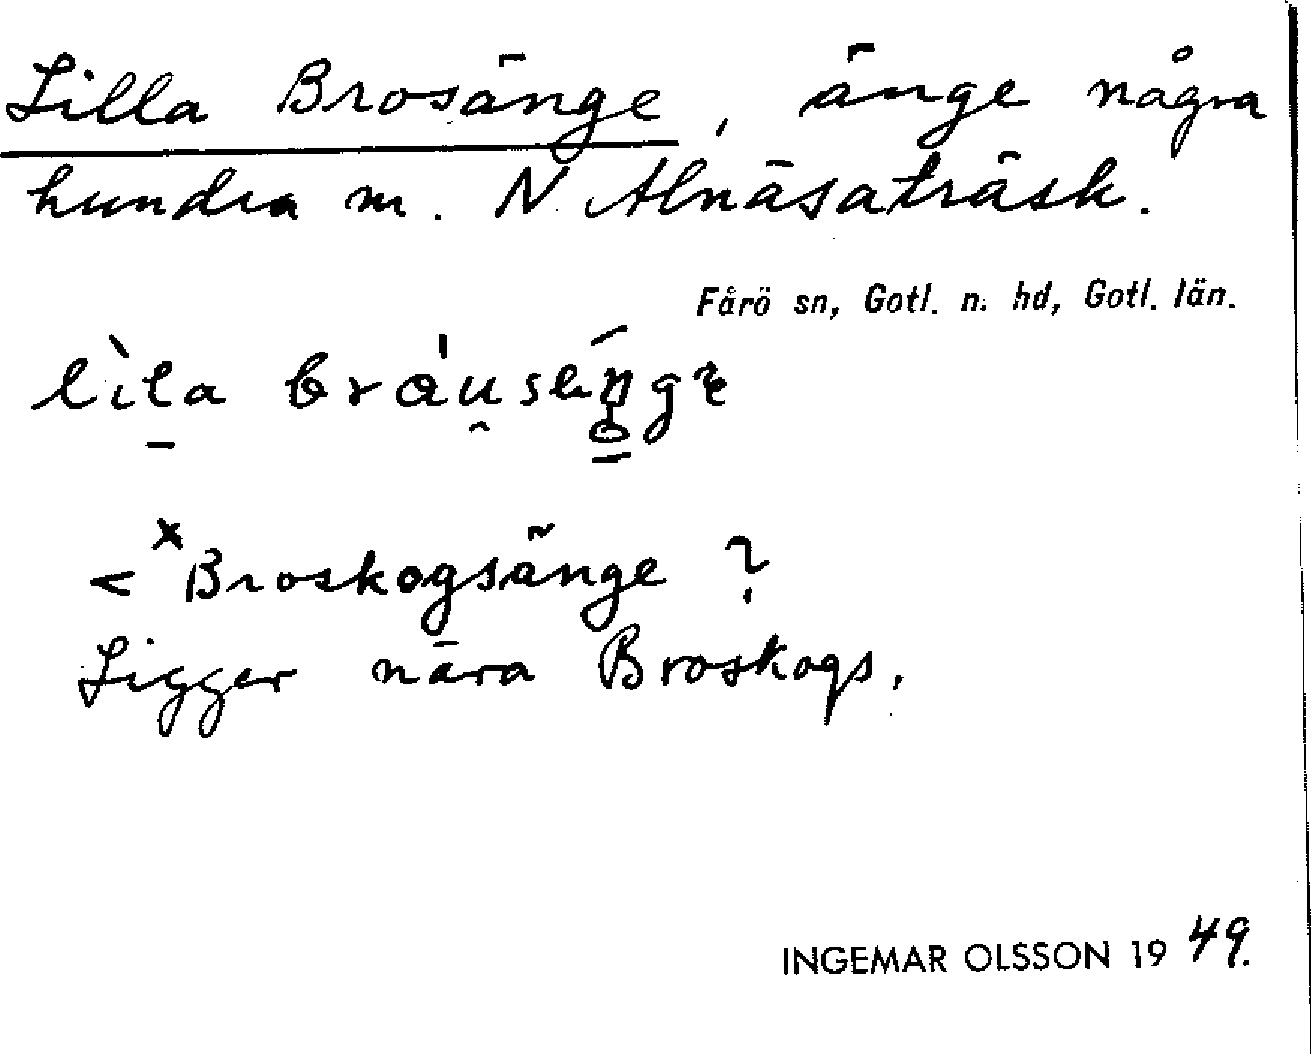 Lilla Brosänge, änge några
hundra m. N Alnäsaträsk.
Fårö sn, Gotl. n. hd, Gotl. län.
< ˣBroskogsänge ?
Ligger nära Broskogs.
INGEMAR OLSSON 1949.